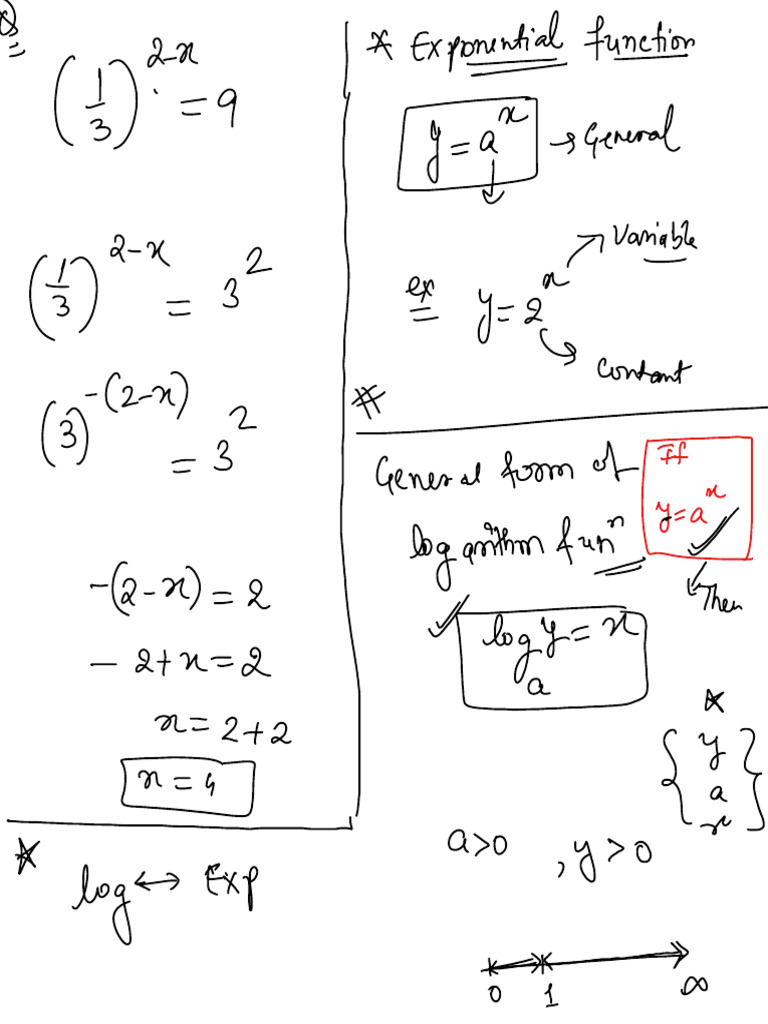 Q
(1/3)^(2-x) = 9
(1/3)^(2-x) = 3^2
(3)^(-(2-x)) = 3^2
-(2-x) = 2
- 2+x = 2
x = 2+2
x = 4
* log ↔ Exp
* Exponential function
y = a^x → General
ex y = 2^x → Variable
→ Contant
#
General form of
logarithm fun^n
If
y = a^x ✓
Then
✓ log_a y = x
*
{ y
a
x }
a>0 , y>0
0 1 ∞